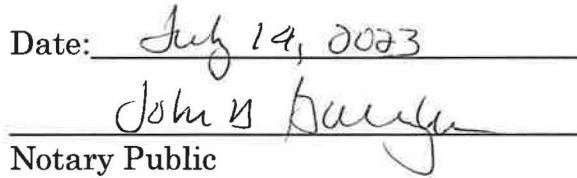 Date: July 14, 2023
John
Notary Public